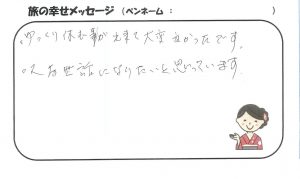 旅の幸せメッセージ (ペンネーム : )
ゆっくり休む事が出来て大変良かったです。
又お世話になりたいと思っています.